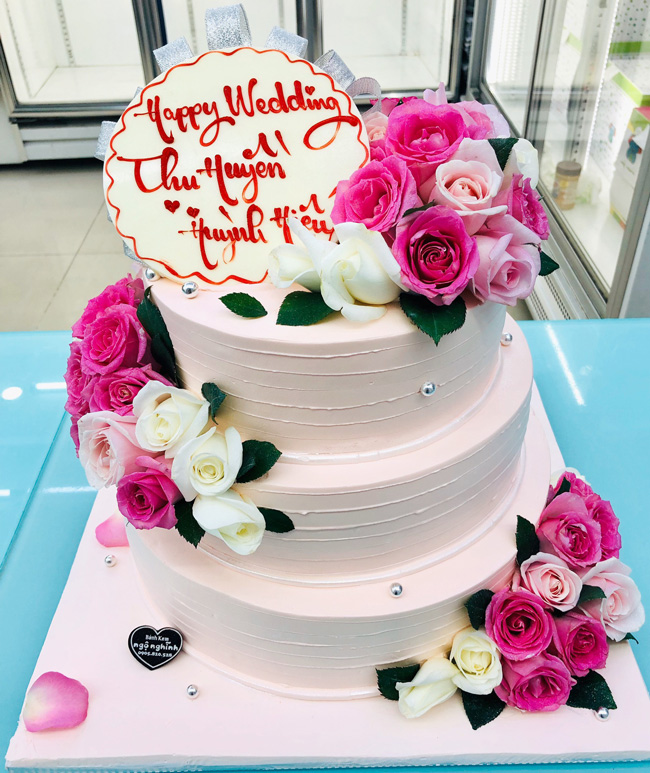 Happy Wedding
Thu Huyền
Huỳnh Hiếu
Bánh Kem
ngộ nghĩnh
0905.820.520